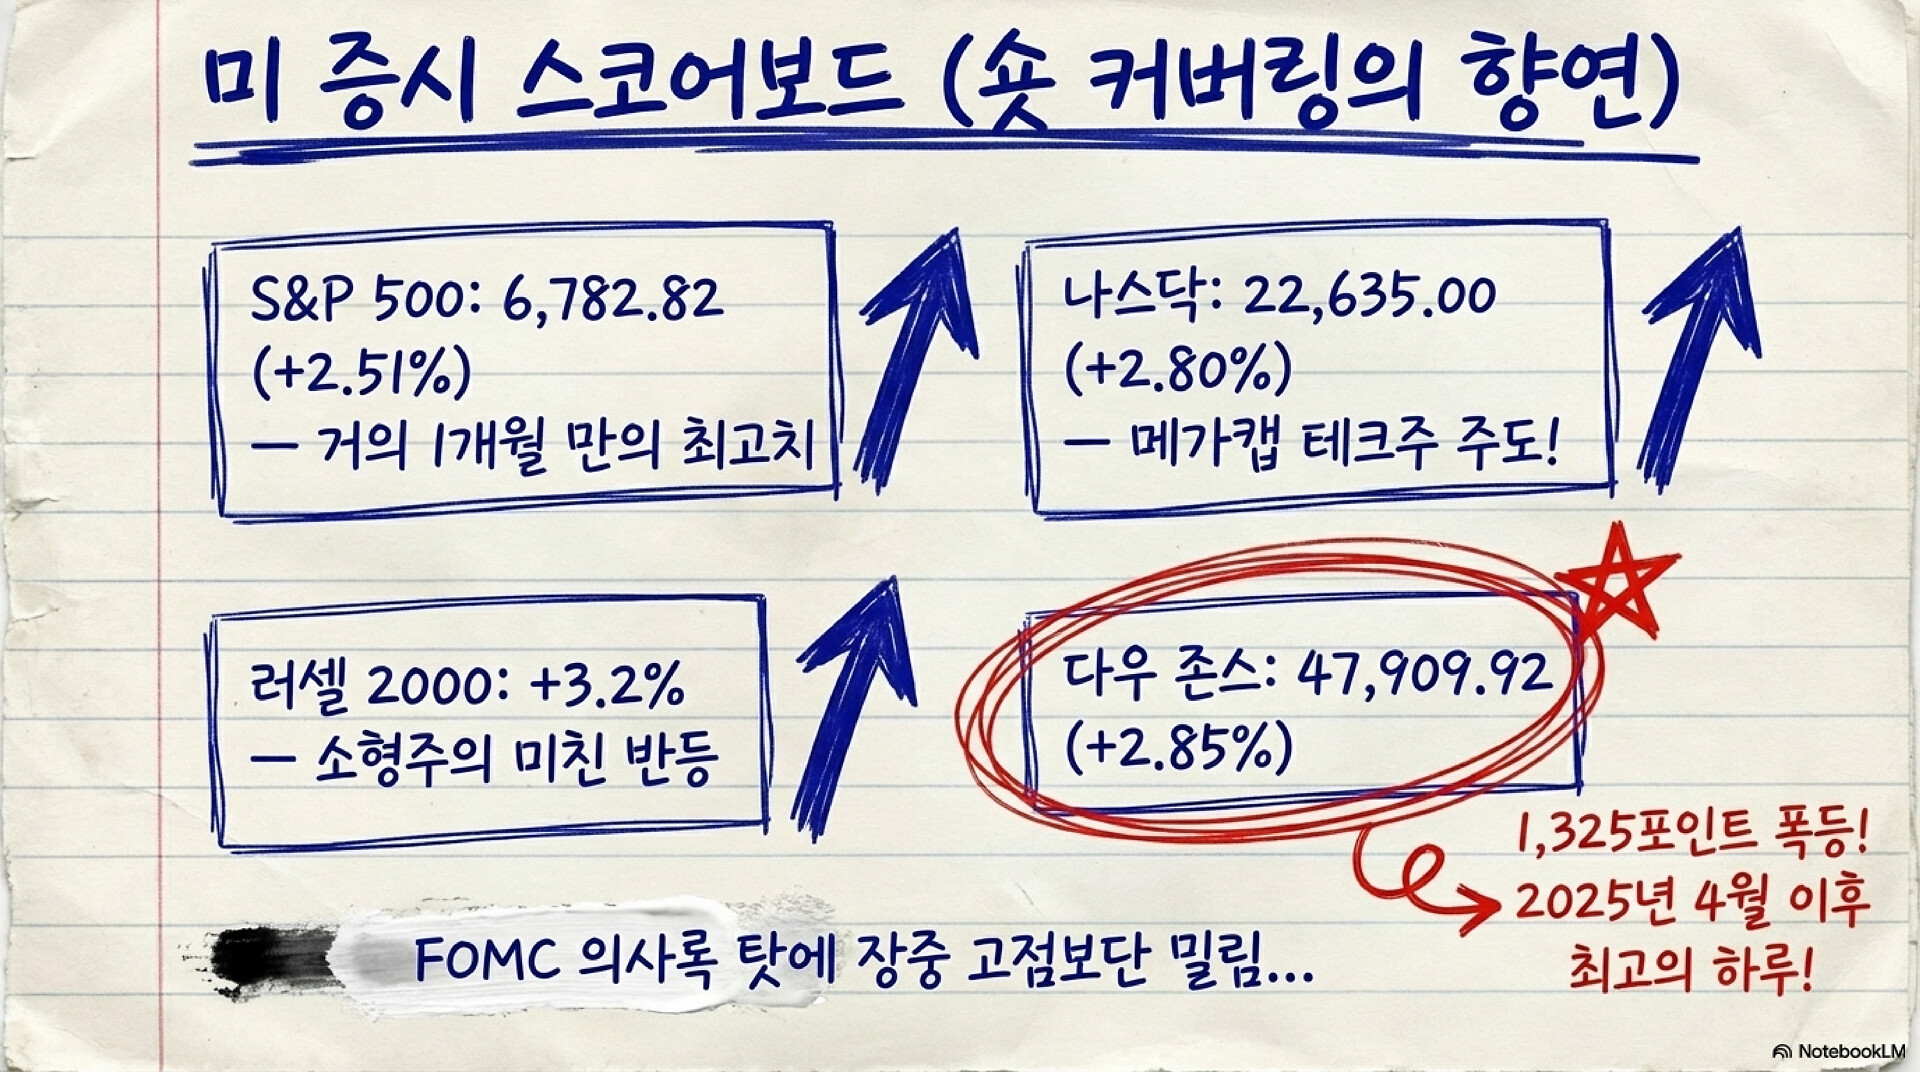 미 증시 스코어보드 (숏 커버링의 향연)
S&P 500: 6,782.82
(+2.51%)
— 거의 1개월 만의 최고치
나스닥: 22,635.00
(+2.80%)
— 메가캡 테크주 주도!
러셀 2000: +3.2%
— 소형주의 미친 반등
다우 존스: 47,909.92
(+2.85%)
1,325포인트 폭등!
2025년 4월 이후
최고의 하루!
FOMC 의사록 탓에 장중 고점보단 밀림...
NotebookLM